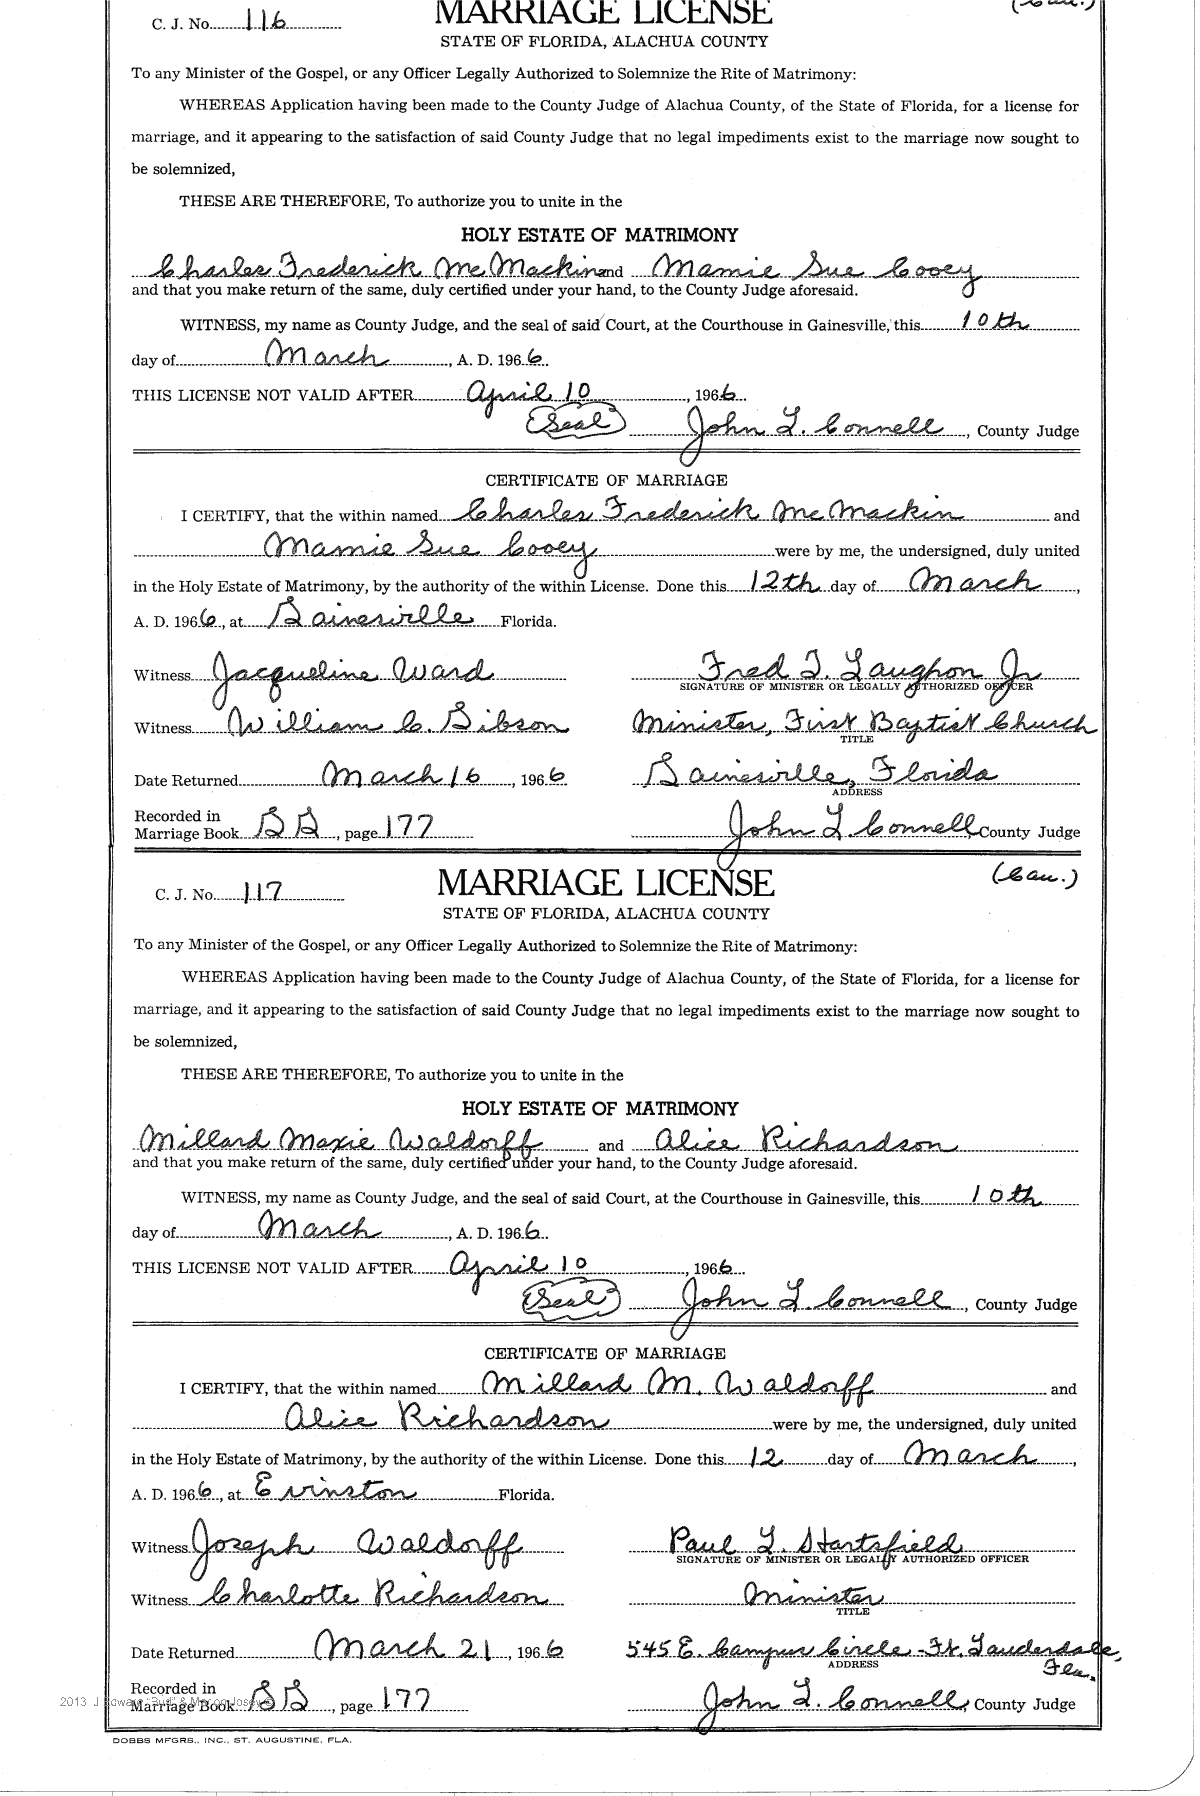 C. J. No. 116 MARRIAGE LICENSE (Cau.)
STATE OF FLORIDA, ALACHUA COUNTY
To any Minister of the Gospel, or any Officer Legally Authorized to Solemnize the Rite of Matrimony:
WHEREAS Application having been made to the County Judge of Alachua County, of the State of Florida, for a license for
marriage, and it appearing to the satisfaction of said County Judge that no legal impediments exist to the marriage now sought to
be solemnized,
THESE ARE THEREFORE, To authorize you to unite in the
HOLY ESTATE OF MATRIMONY
Charles Frederick McMackin and Mamie Sue Cooey
and that you make return of the same, duly certified under your hand, to the County Judge aforesaid.
WITNESS, my name as County Judge, and the seal of said Court, at the Courthouse in Gainesville, this 10th
day of March, A. D. 1966.
THIS LICENSE NOT VALID AFTER April 10, 1966
(Seal) John L. Connell, County Judge
CERTIFICATE OF MARRIAGE
I CERTIFY, that the within named Charles Frederick McMackin and
Mamie Sue Cooey were by me, the undersigned, duly united
in the Holy Estate of Matrimony, by the authority of the within License. Done this 12th day of March,
A. D. 1966, at Gainesville Florida.
Witness Jacqueline Ward Fred T. Laughon Jr
SIGNATURE OF MINISTER OR LEGALLY AUTHORIZED OFFICER
Witness William C. Gibson Minister, First Baptist Church
TITLE
Date Returned March 16, 1966 Gainesville, Florida
ADDRESS
Recorded in
Marriage Book BB, page 177 John L. Connell County Judge
C. J. No. 117 MARRIAGE LICENSE (Cau.)
STATE OF FLORIDA, ALACHUA COUNTY
To any Minister of the Gospel, or any Officer Legally Authorized to Solemnize the Rite of Matrimony:
WHEREAS Application having been made to the County Judge of Alachua County, of the State of Florida, for a license for
marriage, and it appearing to the satisfaction of said County Judge that no legal impediments exist to the marriage now sought to
be solemnized,
THESE ARE THEREFORE, To authorize you to unite in the
HOLY ESTATE OF MATRIMONY
Millard Maxie Waldorff and Alice Richardson
and that you make return of the same, duly certified under your hand, to the County Judge aforesaid.
WITNESS, my name as County Judge, and the seal of said Court, at the Courthouse in Gainesville, this 10th
day of March, A. D. 1966.
THIS LICENSE NOT VALID AFTER April 10, 1966
(Seal) John L. Connell, County Judge
CERTIFICATE OF MARRIAGE
I CERTIFY, that the within named Millard M. Waldorff and
Alice Richardson were by me, the undersigned, duly united
in the Holy Estate of Matrimony, by the authority of the within License. Done this 12 day of March,
A. D. 1966, at Evinston Florida.
Witness Joseph Waldorff Paul L. Hartsfield
SIGNATURE OF MINISTER OR LEGALLY AUTHORIZED OFFICER
Witness Charlotte Richardson Minister
TITLE
Date Returned March 21, 1966 545 E. Campus Circle - Ft. Lauderdale,
ADDRESS Fla.
Recorded in
Marriage Book BB, page 177 John L. Connell, County Judge
2013 J Edward "Bud" & Marion Josey ©
DOBBS MFGRS., INC., ST. AUGUSTINE, FLA.